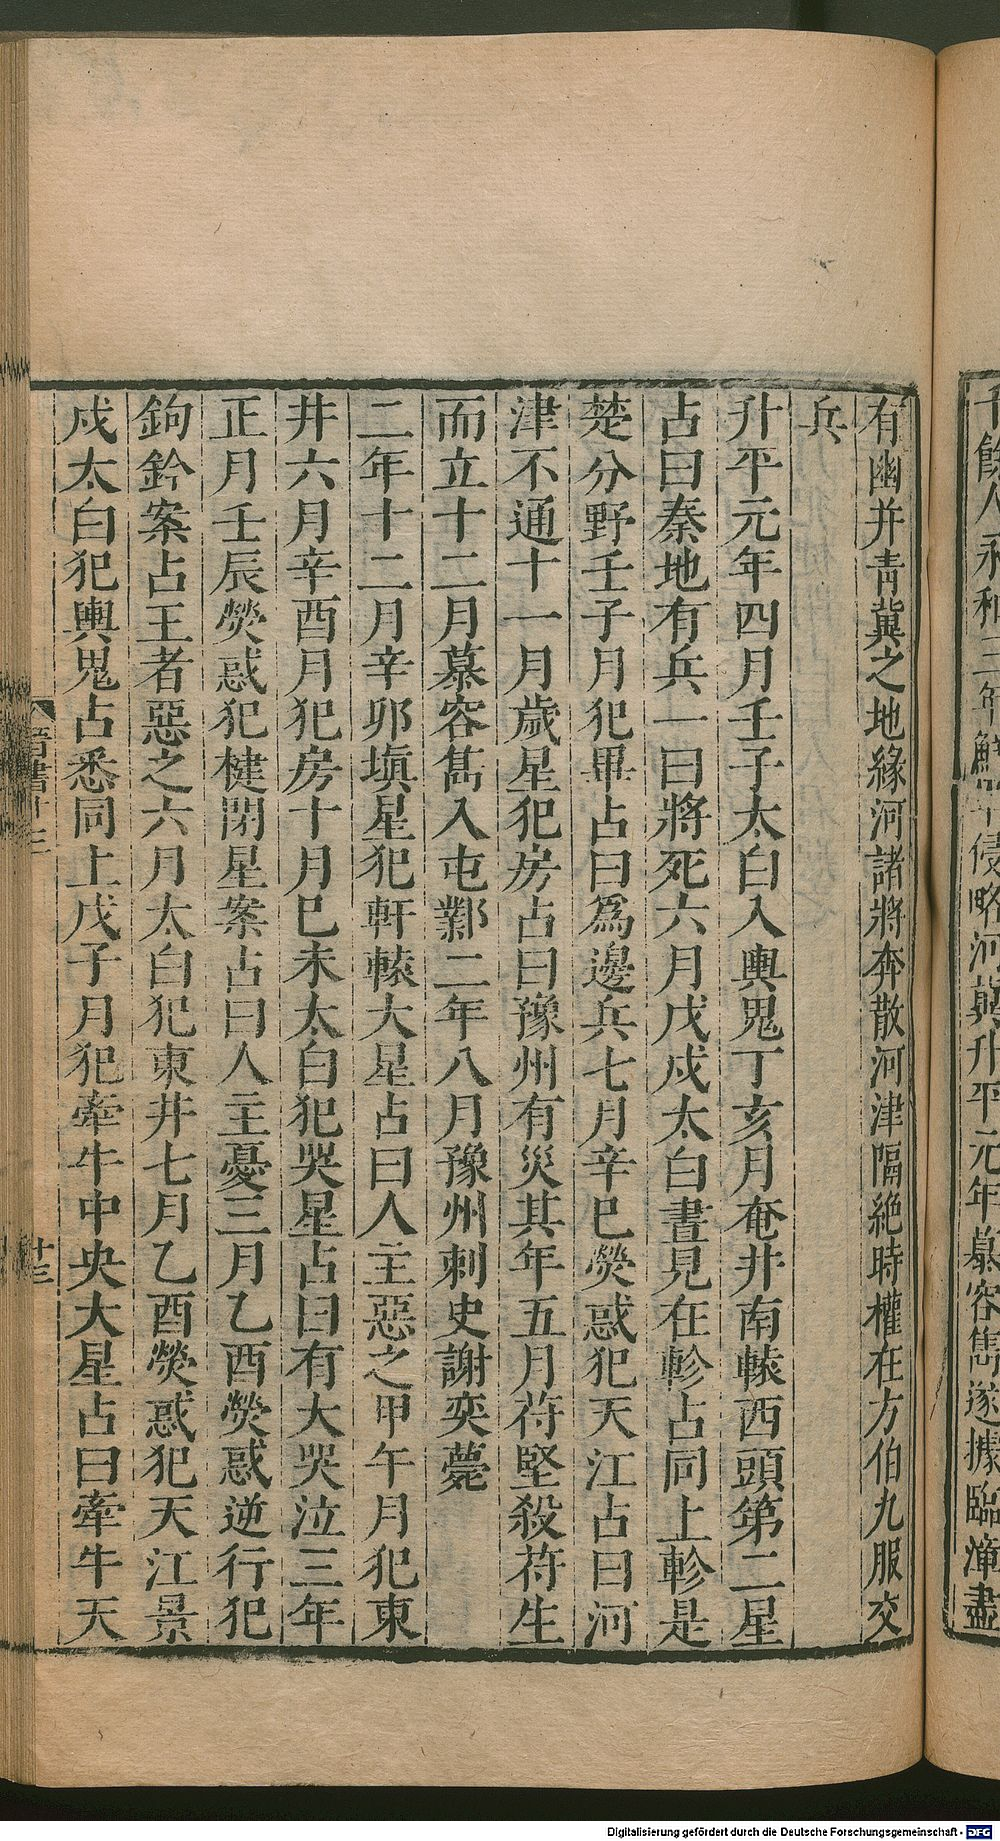 千餘人永和三年鮮卑侵略河冀升平元年慕容雋遂據臨漳盡
有幽并青冀之地緣河諸將奔散河津隔絶時權在方伯九服交
兵
升平元年四月壬子太白入輿鬼丁亥月奄井南轅西頭第二星
占曰秦地有兵一曰將死六月戊戌太白晝見在軫占同上軫是
楚分野壬子月犯畢占曰爲邊兵七月辛巳熒惑犯天江占曰河
津不通十一月歲星犯房占曰豫州有災其年五月苻堅殺苻生
而立十二月慕容雋入屯鄴二年八月豫州刺史謝奕薨
二年十二月辛卯塡星犯軒轅大星占曰人主惡之甲午月犯東
井六月辛酉月犯房十月巳未太白犯哭星占曰有大哭泣三年
正月壬辰熒惑犯楗閉星案占曰人主憂三月乙酉熒惑逆行犯
鉤鈐案占王者惡之六月太白犯東井七月乙酉熒惑犯天江景
戌太白犯輿鬼占悉同上戊子月犯牽牛中央大星占曰牽牛天
晉書十三
十三
Digitalisierung gefördert durch die Deutsche Forschungsgemeinschaft - DFG